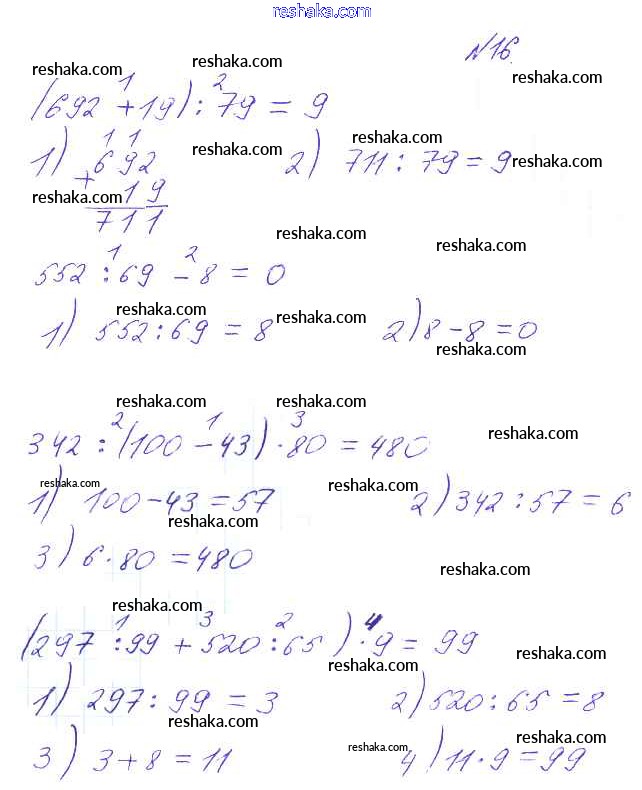 reshaka.com
№16.
reshaka.com reshaka.com reshaka.com
1 2
(692 + 19) : 79 = 9
1) 11
692 reshaka.com 2) reshaka.com 711 : 79 = 9 reshaka.com
+
reshaka.com 19
711
reshaka.com
reshaka.com
1 2
552 : 69 - 8 = 0
reshaka.com reshaka.com
1) 552 : 69 = 8 2) 8 - 8 = 0
reshaka.com
reshaka.com reshaka.com
2 1 3
342 : (100 - 43) · 80 = 480
reshaka.com
reshaka.com reshaka.com
1) 100 - 43 = 57 2) 342 : 57 = 6
reshaka.com
3) 6 · 80 = 480
reshaka.com
reshaka.com
1 3 2 4
(297 : 99 + 520 : 65) · 9 = 99
reshaka.com reshaka.com
1) 297 : 99 = 3 2) 520 : 65 = 8
reshaka.com
reshaka.com reshaka.com
3) 3 + 8 = 11 4) 11 · 9 = 99